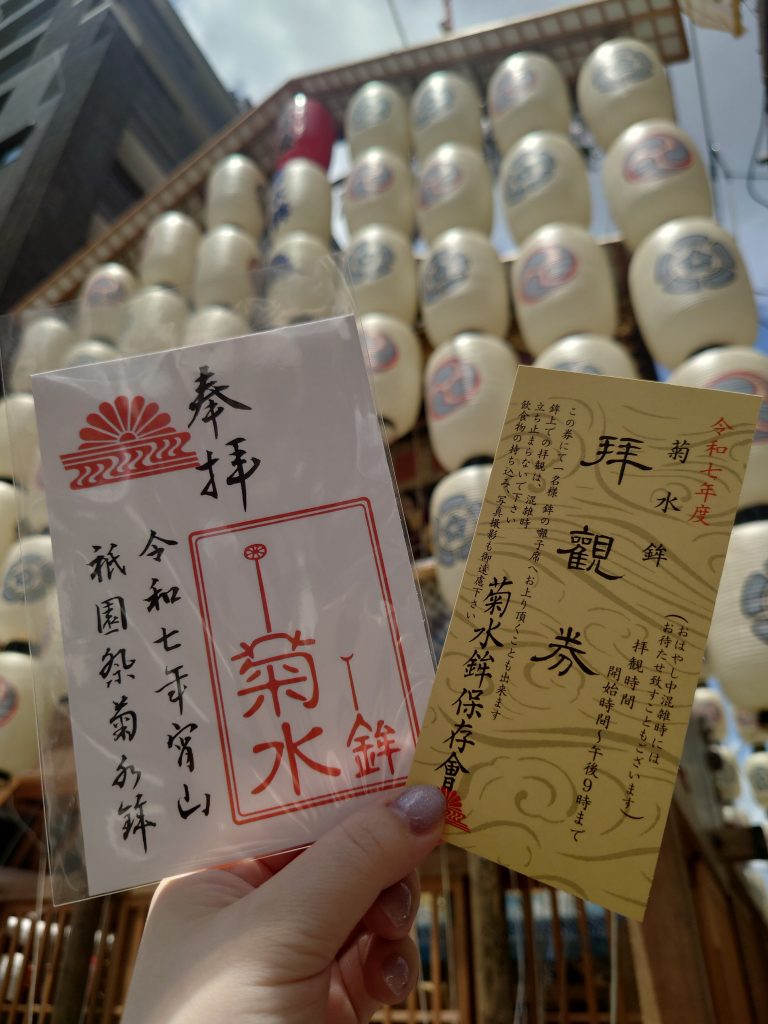 奉拝
菊水
鉾
令和七年宵山
祇園祭菊水鉾
令和七年度
菊水鉾
拝観券
(おはやし中混雑時には
お待たせ致すこともございます)
拝観時間
開始時間~午後9時まで
この券にて一名様 鉾の囃子席へお上り頂くことも出来ます
鉾上での拝観は、混雑時
立ち止まらないで下さい
飲食物の持ち込み、写真撮影も御遠慮下さい
菊水鉾保存會